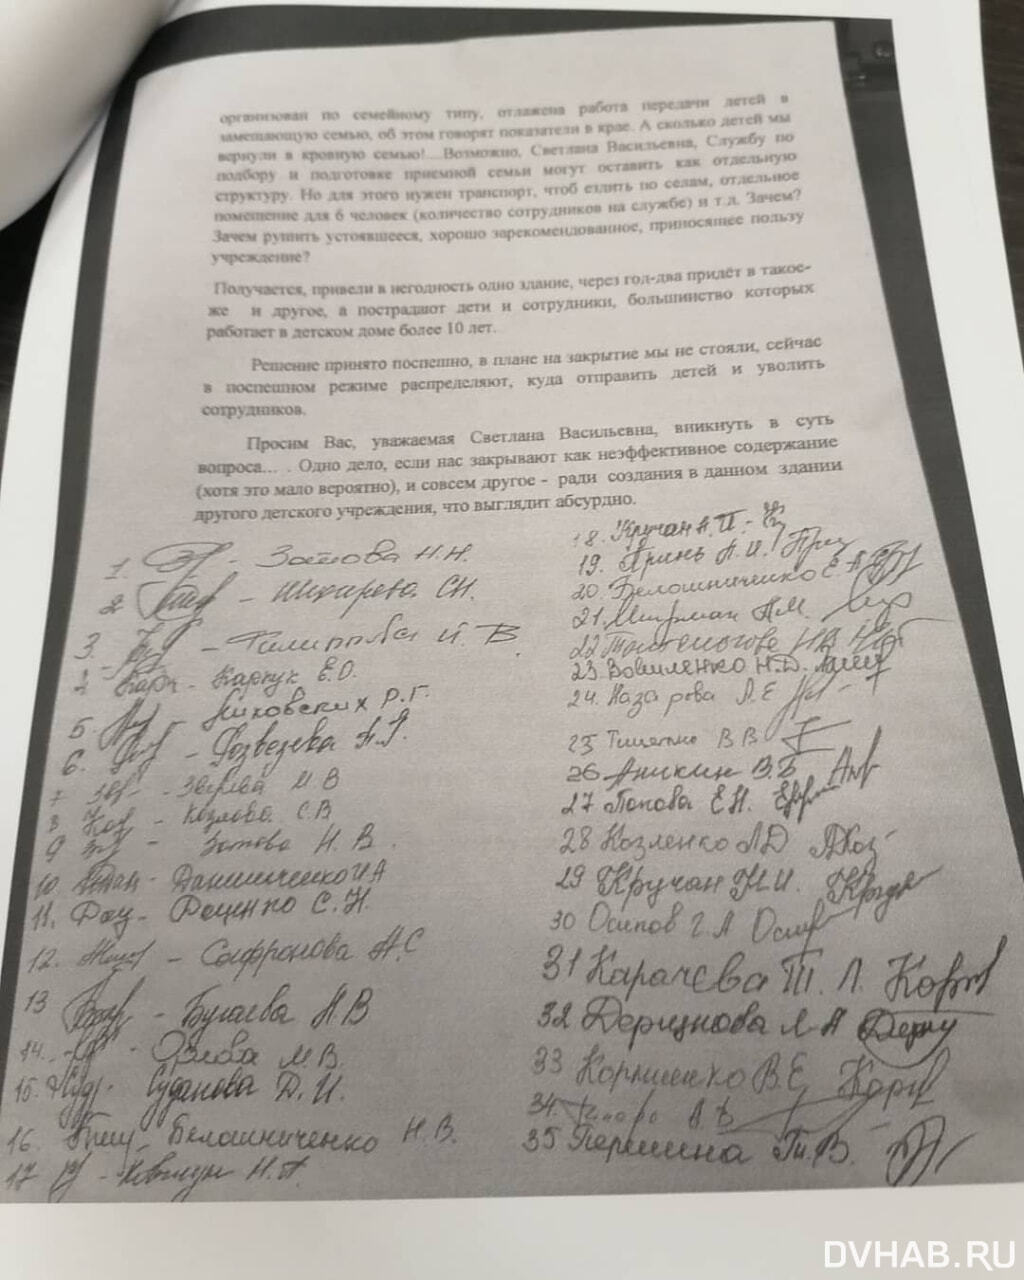 организован по семейному типу, отлажена работа передачи детей в
замещающую семью, об этом говорят показатели в крае. А сколько детей мы
вернули в кровную семью!....Возможно, Светлана Васильевна, Службу по
подбору и подготовке приемной семьи могут оставить как отдельную
структуру. Но для этого нужен транспорт, чтоб ездить по селам, отдельное
помещение для 6 человек (количество сотрудников на службе) и т.д. Зачем?
Зачем рушить устоявшееся, хорошо зарекомендованное, приносящее пользу
учреждение?
Получается, привели в негодность одно здание, через год-два придёт в такое-
же и другое, а пострадают дети и сотрудники, большинство которых
работает в детском доме более 10 лет.
Решение принято поспешно, в плане на закрытие мы не стояли, сейчас
в поспешном режиме распределяют, куда отправить детей и уволить
сотрудников.
Просим Вас, уважаемая Светлана Васильевна, вникнуть в суть
вопроса... . Одно дело, если нас закрывают как неэффективное содержание
(хотя это мало вероятно), и совсем другое - ради создания в данном здании
другого детского учреждения, что выглядит абсурдно.
1. - Зотова Н.Н.
2. - С.Н.
3. - В.
Карп - Карпук Е.О.
5. - Р.Г.
6. -
7 Зв - Зверева М В
8 Коз - Козлова С.В
9 - Зотова Н. В.
10. - Данильченко И А
11. Фец - Фещенко С.Н.
12. - Сафронова А.С
13 - Бугаева А В
14. - Орлова М.В.
15. Суд - Суданова Д.И.
16. - Белошниченко Н.В.
17 - Н.П.
18. Кручан А.П. -
19. Принь А.И. При
20. Белошниченко Е.А.
21. А.М.
22 Н.В.
23. Вошиленко Н.Д.
24. Назарова Л.Е
25 Тищенко В В
26 Аникин В.Б Аник
27 Попова Е.Н.
28 Козленко Л Д ЛКоз
29 Кручан Н.И. Круч
30 Осипов Г.А Осип
31 Карачева Т. Л. Кар
32 Л А
33 Корниенко В.Е. Корн
34.
35 Першина Т.В.
DVHAB.RU